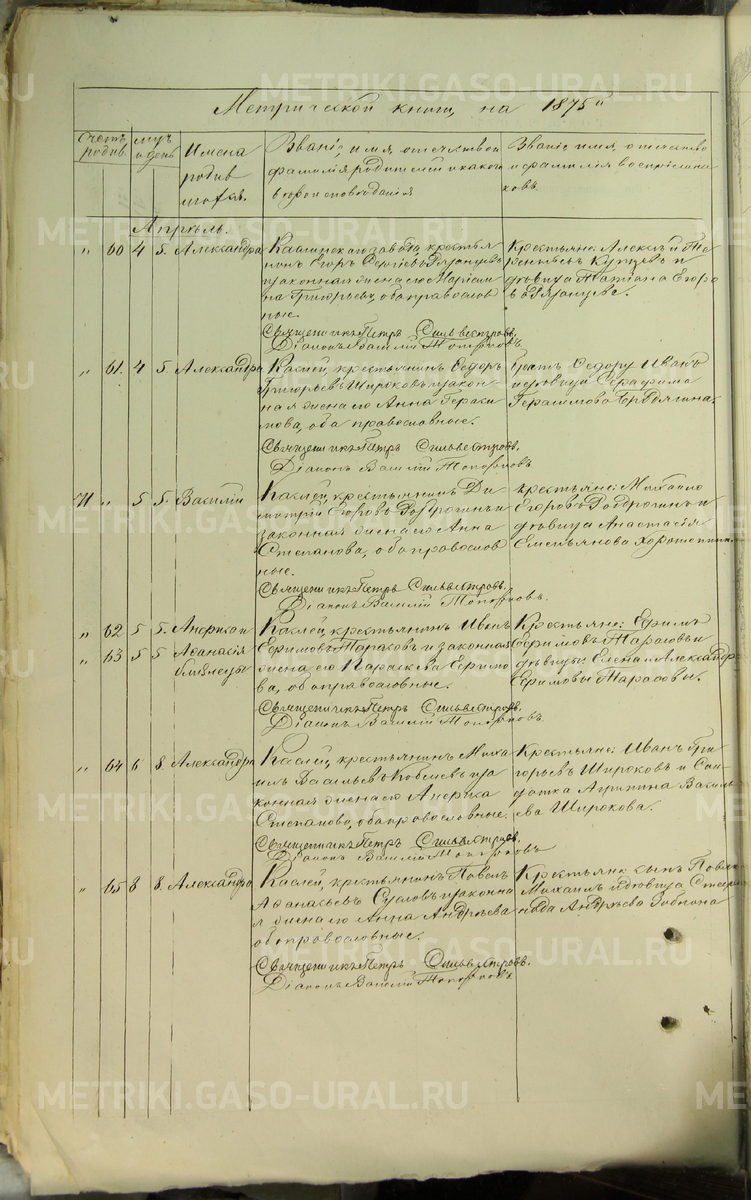 Метрической книги, на 1875й
Счетъ родив.
мцъ и день
Имена родив
Званіе, имя, отчество и
фамилія родителей и какого
вѣроисповѣданія
Званіе имя, отчество
и фамилія воспріемни
ковъ.
Апрѣль.
„ 60 4 5. Александра
Каслинскаго завода, крестья
нинъ Егоръ Сергѣевъ
и законная жена его Маріам
на Григорьева, оба православ
ные.
Священникъ Петръ Сильвестровъ.
Діаконъ Василій Топорковъ.
Крестьяне: Алексѣй Те
рентьевъ и
дѣвица Татіана Егоро
ва
„ 61. 4 5 Александра
Каслей, крестьянинъ Ѳедоръ
Григорьевъ Широковъ и закон
ная жена его Анна Гераси
мова, оба православные.
Священникъ Петръ Сильвестровъ.
Діаконъ Василій Топорковъ
братъ Ѳедору Иванъ
и дѣвица Серафима
Герасимова
71 „ 5 5. Василій
Каслей, крестьянинъ Ди
митрій Егоровъ и
законная жена его Анна
Степанова, оба православ
ные.
Священникъ Петръ Сильвестровъ.
Діаконъ Василій Топорковъ.
крестьяне: Михаило
Егоровъ и
дѣвица Анастасія
Емельянова
„ 62 5 5. Анфиса и
„ 63 5 5 Аѳанасія
близнецы
Каслей, крестьянинъ Иванъ
Ефимовъ Тарасовъ и законная
жена его Параскева Ефимо
ва, оба православные.
Священникъ Петръ Сильвестровъ.
Діаконъ Василій Топорковъ.
Крестьяне: Ефимъ
Ефимовъ Тарасовъ и
дѣвицы: Елена и Александр
Ефимовы Тарасовы.
„ 64 6 8. Александра
Каслей, крестьянинъ Миха
илъ Васильевъ и за
конная жена его
Степанова, оба православные.
Священникъ Петръ Сильвестровъ.
Діаконъ Василій Топорковъ
Крестьяне: Иванъ Гри
горьевъ Широковъ и Сол
датка Агрипина Василь
ева Широкова.
„ 65 8 8. Александра
Каслей, крестьянинъ Павелъ
Аѳанасьевъ Сусловъ и законна
я жена его Анна Андреева
оба православные.
Священникъ Петръ Сильвестровъ.
Діаконъ Василій Топорковъ
Крестьяне: сынъ Павла
Михаилъ и дѣвица Степа
нида Андреева
METRIKI.GASO-URAL.RU